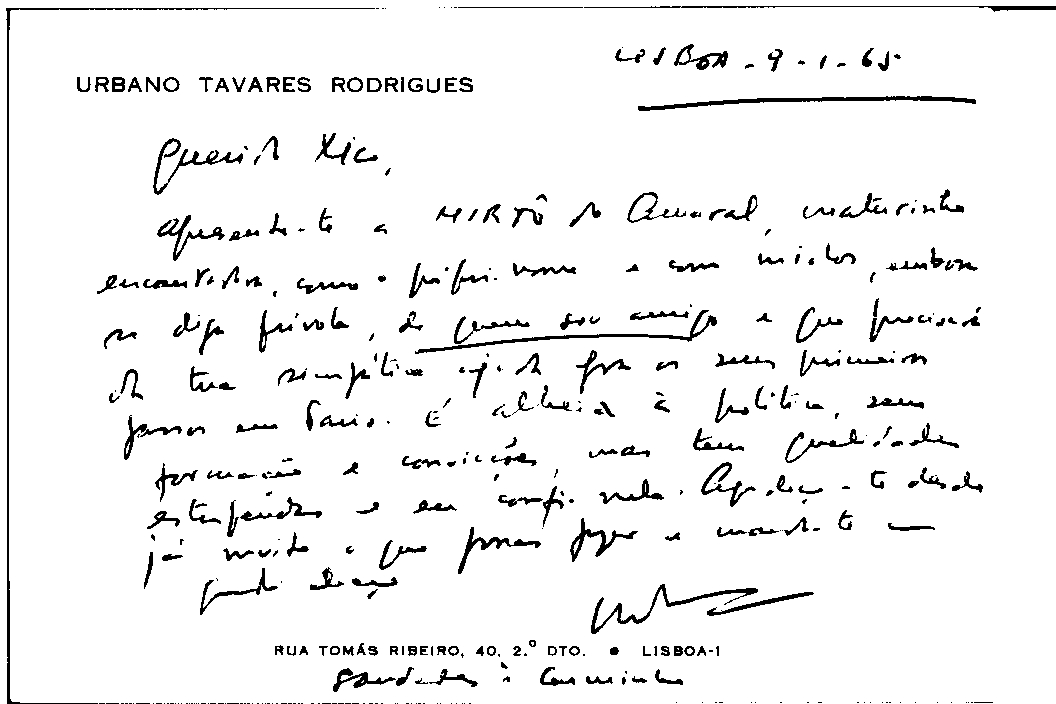 LISBOA - 9 - 1 - 65
URBANO TAVARES RODRIGUES
Querido Xico,
Apresento-te a MIRTÔ do Amaral,
encantadora, como o próprio nome e com miolos, embora
se diga frívola, de quem sou amigo e que precisará
da tua simpática ajuda para os seus primeiros
passos em Paris. É alheia à política, sem
formação e convicções, mas tem qualidades
estupendas e eu confio nela. Agradeço-te desde
já muito o que possas fazer e mando-te um
grande abraço
RUA TOMÁS RIBEIRO, 40, 2.º DTO. ● LISBOA-1
Saudades à Carminho